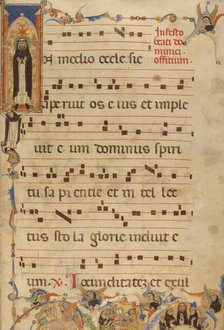 In festo
beati do
minici
officium.
In medio ecclesie
aperuit os eius et imple
uit eum dominus spiri
tu sapientie et intellec
tus stola glorie induit e
um. Iocunditatem et exul